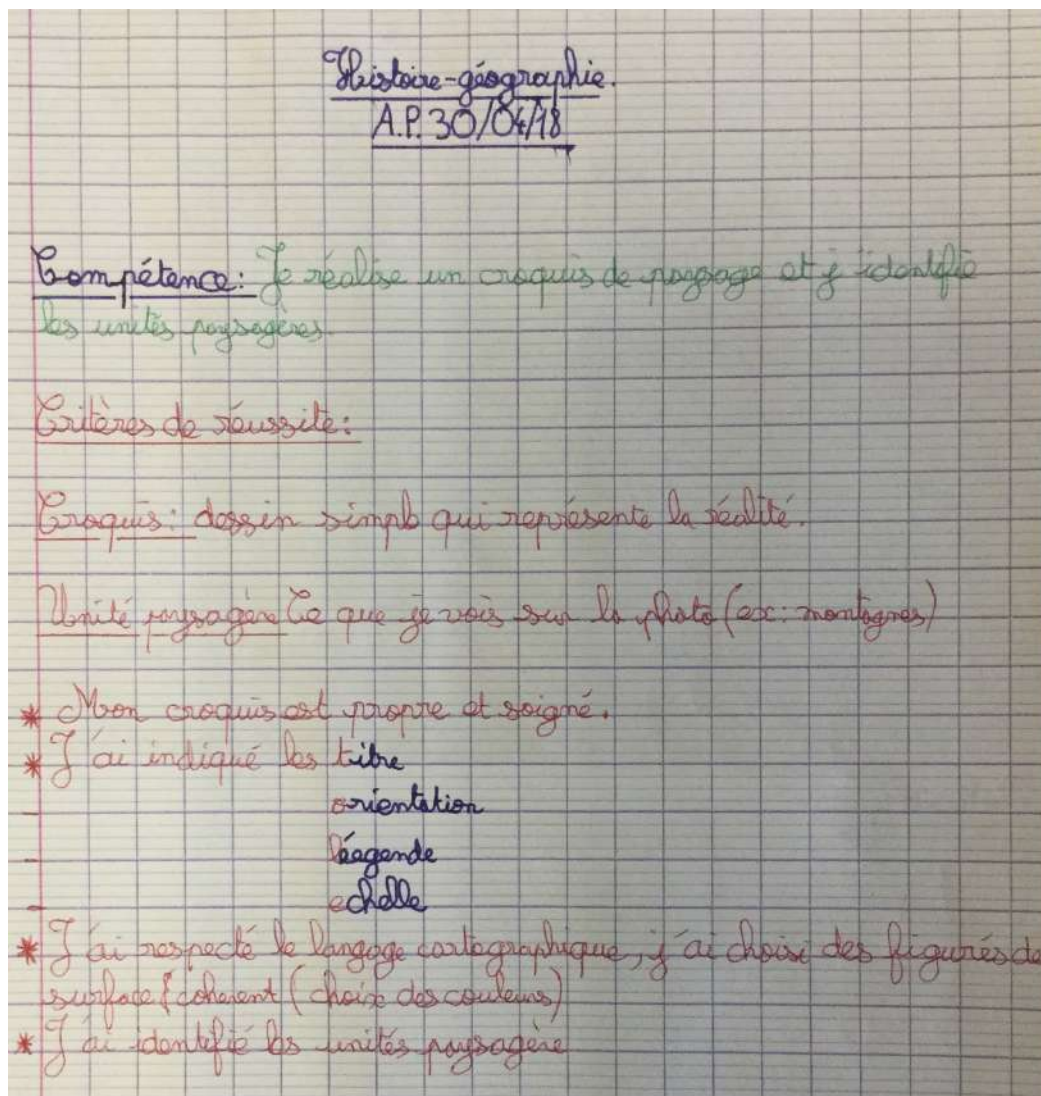 Histoire-géographie.
A.P. 30/04/18
Compétence: Je réalise un croquis de paysage et j'identifie
les unités paysagères.
Critères de réussite:
Croquis: dessin simple qui représente la réalité.
Unité paysagère Ce que je vois sur la photo (ex: montagnes)
* Mon croquis est propre et soigné.
* J'ai indiqué les titre
- orientation
- léagende
- echelle
* J'ai respecté le langage cartographique, j'ai choisi des figurés de
surface cohérent (choix des couleurs)
* J'ai identifié les unités paysagère